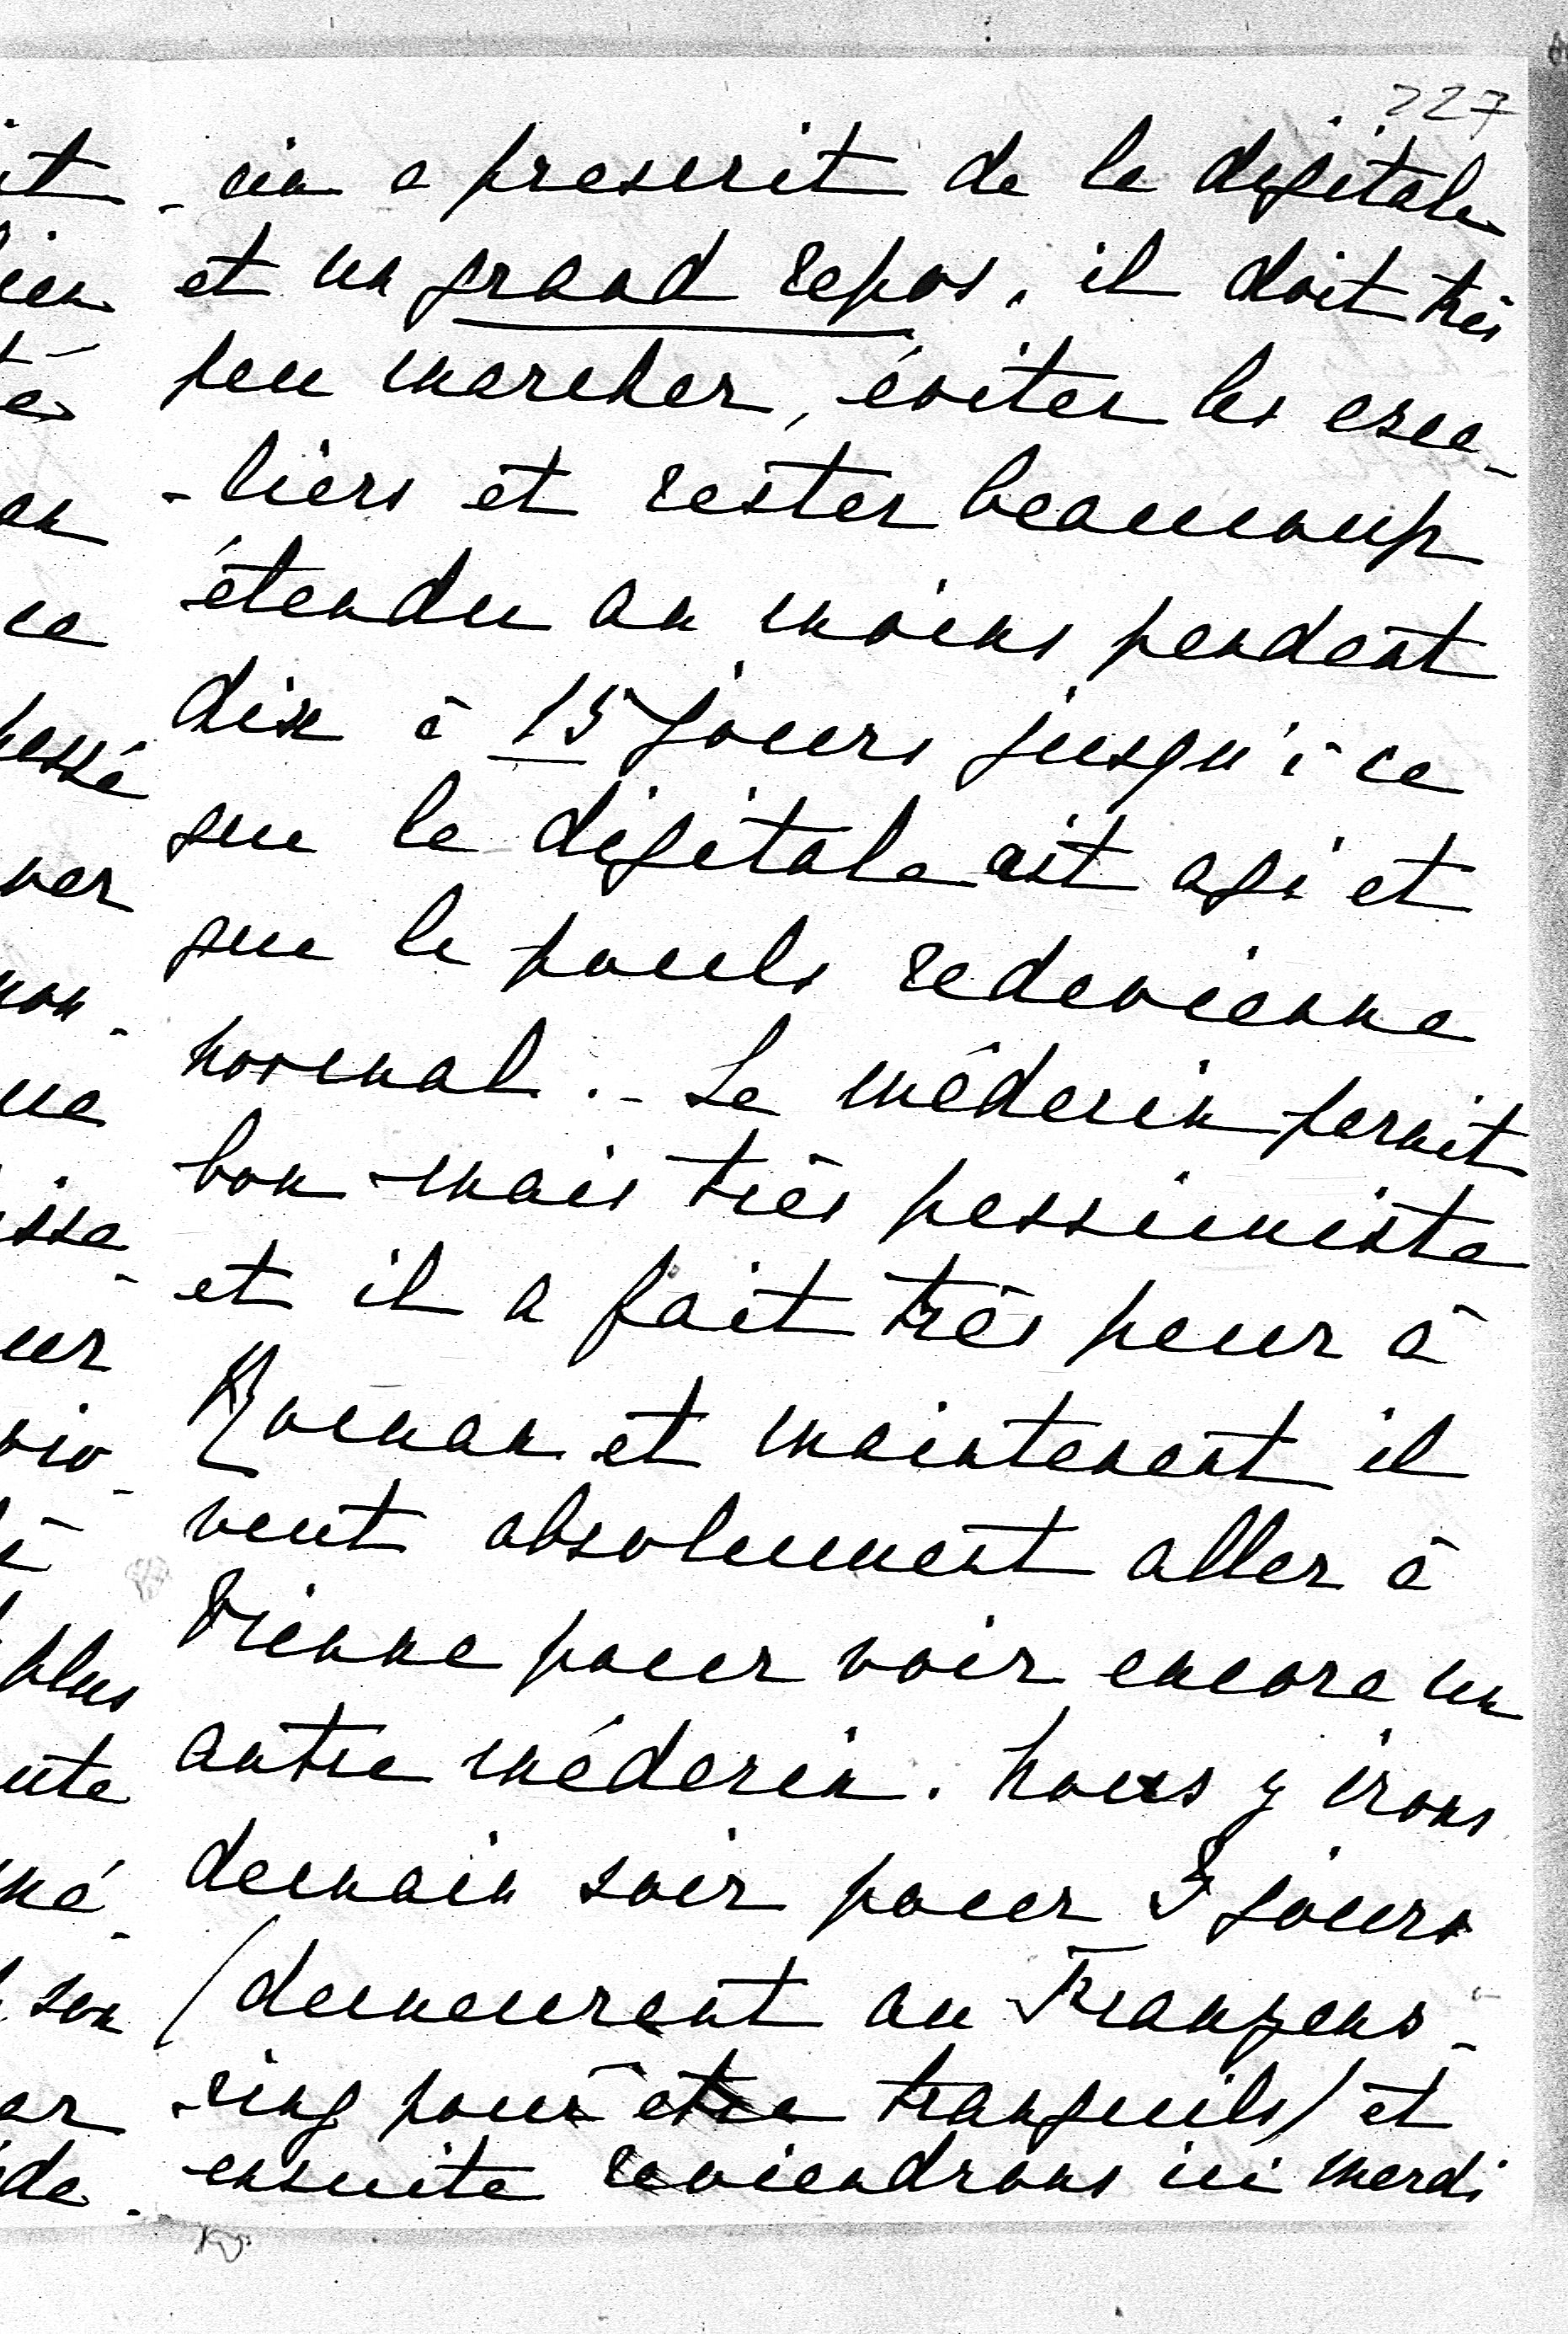 227
-cin a prescrit de la digitale
et un grand repos, il doit très
peu marcher, éviter les esca-
-liers et rester beaucoup
étendu au moins pendant
dix à 15 jours jusqu'à ce
que la digitale ait agi et
que le pouls redevienne
normal. - Le médecin parait
bon mais très pessimiste
et il a fait très peur à
Roman et maintenant il
veut absolument aller à
Vienne pour voir encore un
autre médecin. Nous y irons
demain soir pour 3 jours
(demeurant au Franzens-
-ring pour être tranquils) et
ensuite reviendrons ici mardi